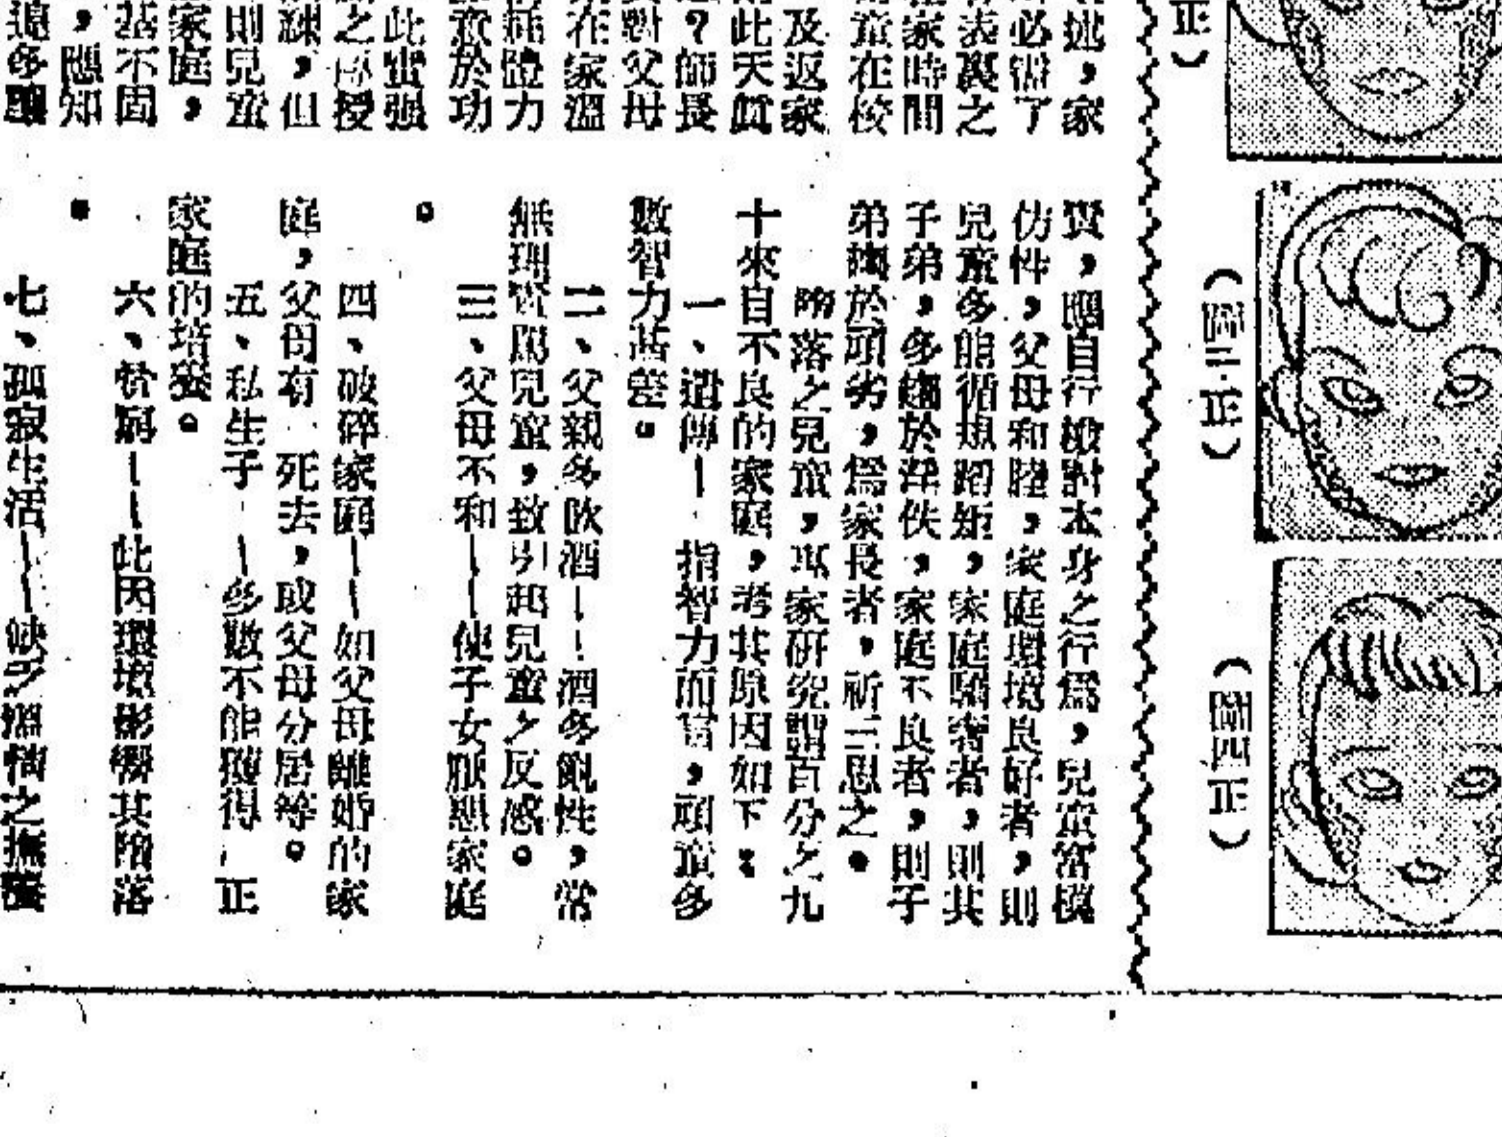 正）
（圖三・正）
（圖四正）
述，家
必需了
表裏之
家時間
童在校
及返家
此天眞
？師長
對父母
在家溫
耗體力
意於功
此蠻强
之傳授
練，但
則兒童
家庭，
基不固
，應知
多釀
質，應自行檢對本身之行爲，兒童富模
仿性，父母和睦，家庭環境良好者，則
兒童多能循規蹈矩，家庭驕奢者，則其
子弟，多趨於淫佚，家庭不良者，則子
弟獨於頑劣，爲家長者，祈三思之。
落之兒童，專家研究謂百分之九
十來自不良的家庭，考其原因如下：
一、遺傳—指智力而言，頑童多
數智力甚差。
二、父親多飲酒——酒多亂性，常
無理責罵兒童，致引起兒童之反感。
三、父母不和——使子女厭惡家庭
。
四、破碎家庭——如父母離婚的家
庭，父母有一死去，或父母分居等。
五、私生子—多數不能獲得正
家庭的培養。
六、貧窮——此因環境影響其陷落
。
七、孤寂生活——缺少溫情之撫養